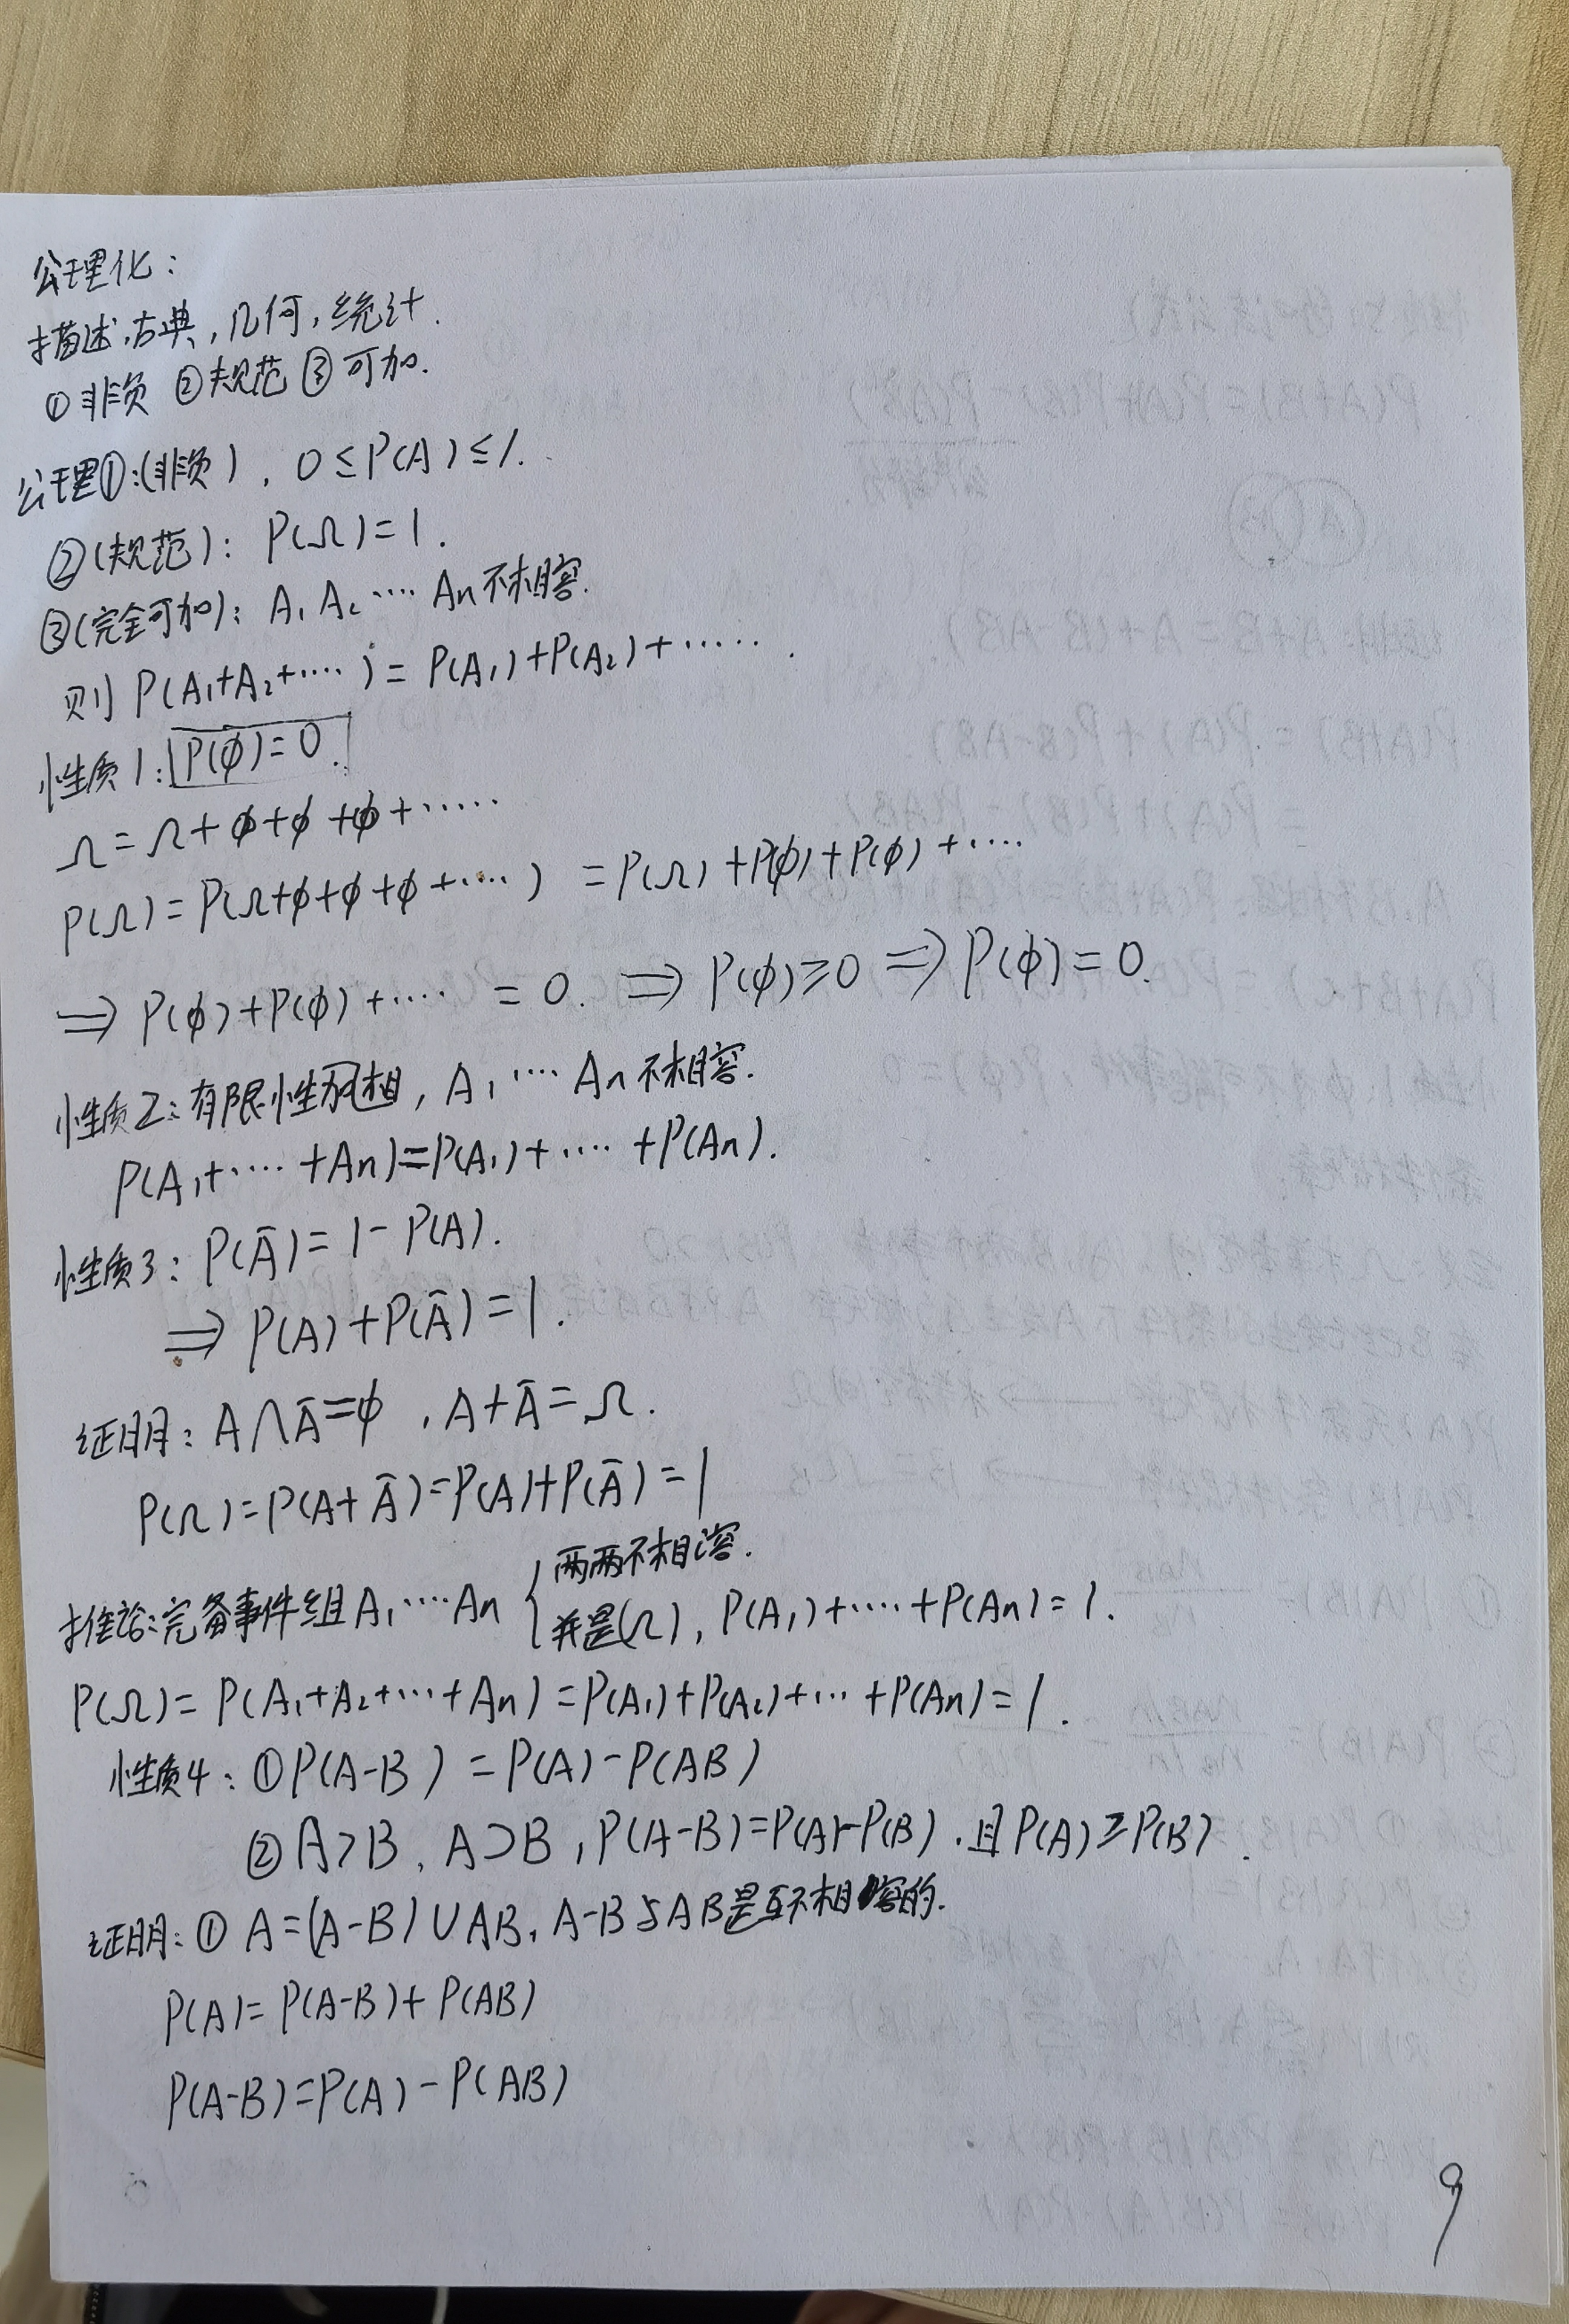 公理化:
描述,古典,几何,统计.
①非负 ②规范 ③可加.
公理①:(非负), 0≤P(A)≤1.
②(规范): P(Ω)=1.
③(完全可加): A₁ A₂ ···· An 不相容.
则 P(A₁+A₂+····)=P(A₁)+P(A₂)+······.
性质1: P(ϕ)=0.
Ω=Ω+ϕ+ϕ+ϕ+······
P(Ω)=P(Ω+ϕ+ϕ+ϕ+····) =P(Ω)+P(ϕ)+P(ϕ)+····
⇒ P(ϕ)+P(ϕ)+···· =0. ⇒ P(ϕ)≥0 ⇒ P(ϕ)=0.
性质2: 有限性, A₁···· An 不相容.
P(A₁+···· +An)=P(A₁)+···· +P(An).
性质3: P(Ā)=1-P(A).
⇒ P(A)+P(Ā)=1.
证明: A∩Ā=ϕ , A+Ā=Ω.
P(Ω)=P(A+Ā)=P(A)+P(Ā)=1
推论:完备事件组A₁····An { 两两不相溶.
并是(Ω), P(A₁)+····+P(An)=1.
P(Ω)=P(A₁+A₂+···+An)=P(A₁)+P(A₂)+···+P(An)=1.
性质4: ①P(A-B) =P(A)-P(AB)
②A>B, A⊃B, P(A-B)=P(A)-P(B). 且P(A)≥P(B).
证明: ① A=(A-B)∪AB, A-B与AB是互不相容的.
P(A)=P(A-B)+P(AB)
P(A-B)=P(A)-P(AB)
9